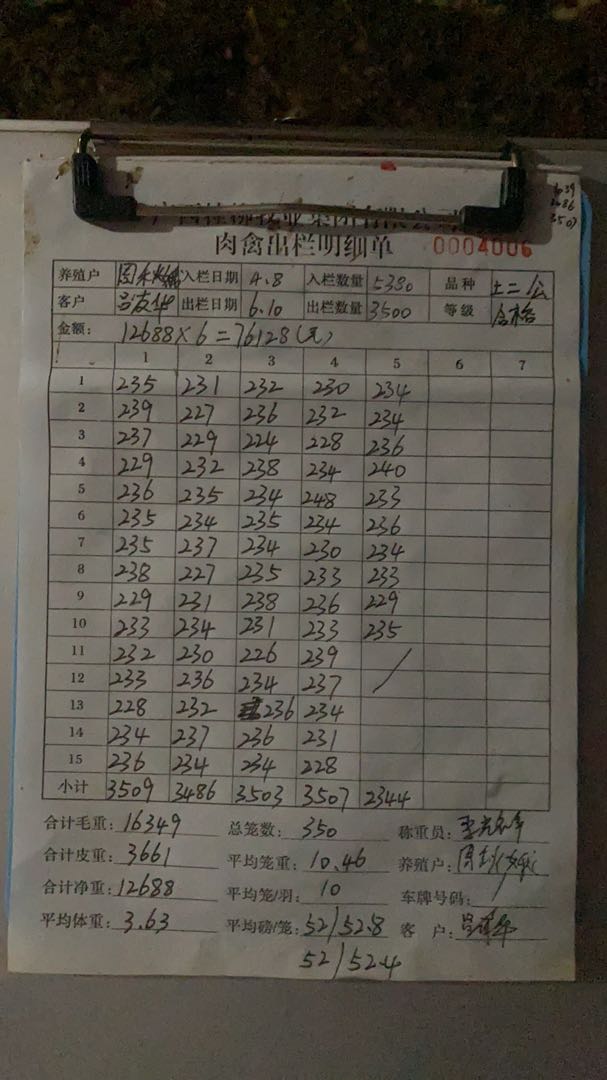 3507
肉禽出栏明细单 0004006
养殖户 入栏日期 4.8 入栏数量 5380 品种 土二公
客户 吕友华 出栏日期 6.10 出栏数量 3500 等级 合格
金额: 12688×6=76128(元)
1 2 3 4 5 6 7
1 235 231 232 230 234
2 239 227 236 232 234
3 237 229 224 228 236
4 229 232 238 234 240
5 236 235 234 248 233
6 235 234 235 234 236
7 235 237 234 230 234
8 238 227 235 233 233
9 229 231 238 236 229
10 233 234 231 233 235
11 232 230 226 239 /
12 233 236 234 237 /
13 228 232 236 234
14 234 237 236 231
15 236 234 234 228
小计 3509 3486 3503 3507 2344
合计毛重: 16349 总笼数: 350 称重员:
合计皮重: 3661 平均笼重: 10.46 养殖户:
合计净重: 12688 平均笼/羽: 10 车牌号码: /
平均体重: 3.63 平均磅/笼: 52/52.8 客 户:
52/52.4